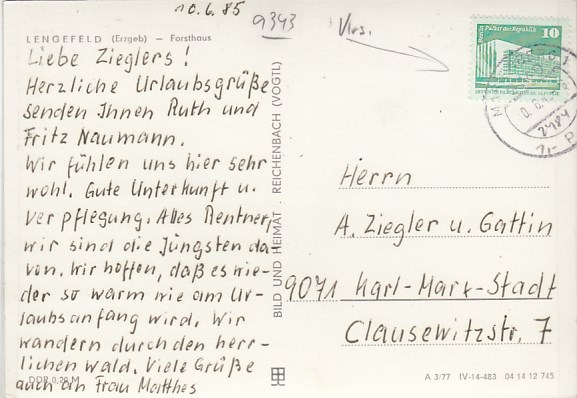 10.6.85
9343
LENGEFELD (Erzgeb) – Forsthaus
Liebe Zieglers!
Herzliche Urlaubsgrüße
senden Ihnen Ruth und
Fritz Naumann.
Wir fühlen uns hier sehr
wohl. Gute Unterkunft u.
Verpflegung. Alles Rentner,
wir sind die Jüngsten da-
von. Wir hoffen, daß es wie-
der so warm wie am Ur-
laubsanfang wird. Wir
wandern durch den herr-
lichen Wald. Viele Grüße
auch an Frau Matthes
DDR 0,20 M
BILD UND HEIMAT REICHENBACH (VOGTL)
10
Herrn
A. Ziegler u. Gattin
9071 Karl-Marx-Stadt
Clausewitzstr. 7
A 3/77 IV-14-483 04 14 12 745